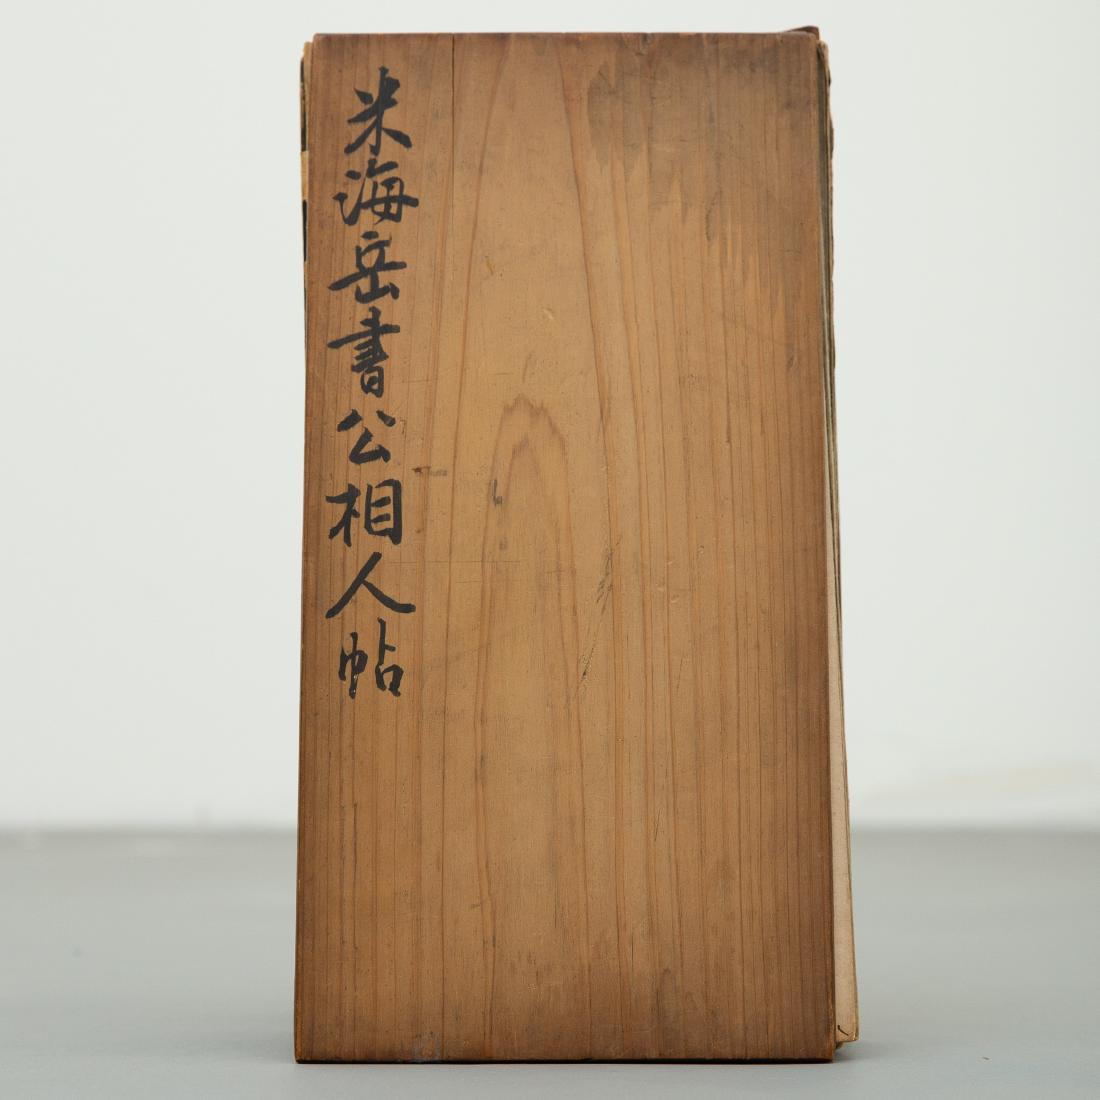 米海岳書公相人帖